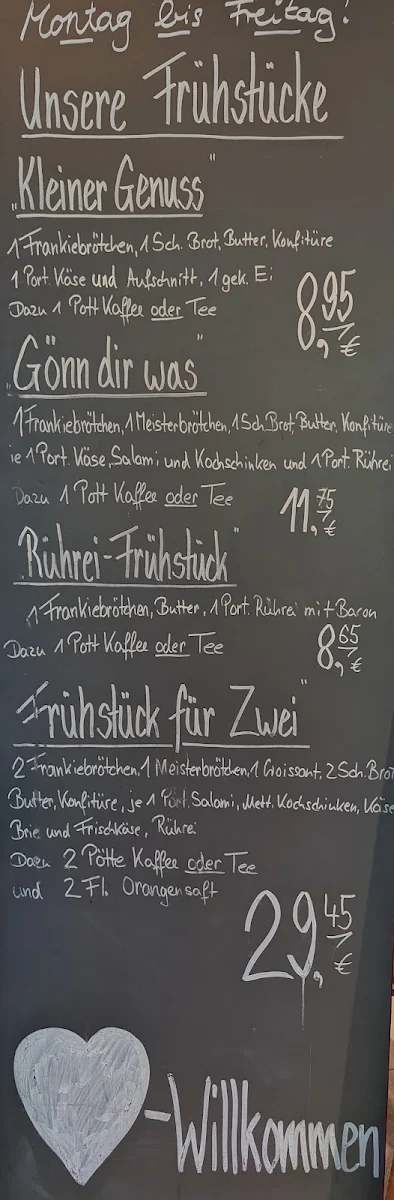 Montag bis Freitag!
Unsere Frühstücke
„Kleiner Genuss"
1 Frankiebrötchen, 1 Sch. Brot, Butter, Konfitüre
1 Port. Käse und Aufschnitt, 1 gek. Ei
Dazu 1 Pott Kaffee oder Tee
8,95 €
„Gönn dir was"
1 Frankiebrötchen, 1 Meisterbrötchen, 1 Sch. Brot, Butter, Konfitüre
je 1 Port. Käse, Salami und Kochschinken und 1 Port. Rührei
Dazu 1 Pott Kaffee oder Tee
11,75 €
„Rührei-Frühstück"
1 Frankiebrötchen, Butter, 1 Port. Rührei mit Bacon
Dazu 1 Pott Kaffee oder Tee
8,65 €
„Frühstück für Zwei"
2 Frankiebrötchen, 1 Meisterbrötchen, 1 Croissant, 2 Sch. Brot
Butter, Konfitüre, je 1 Port. Salami, Mett, Kochschinken, Käse
Brie und Frischkäse, Rührei
Dazu 2 Pötte Kaffee oder Tee
und 2 Fl. Orangensaft
29,45 €
-Willkommen